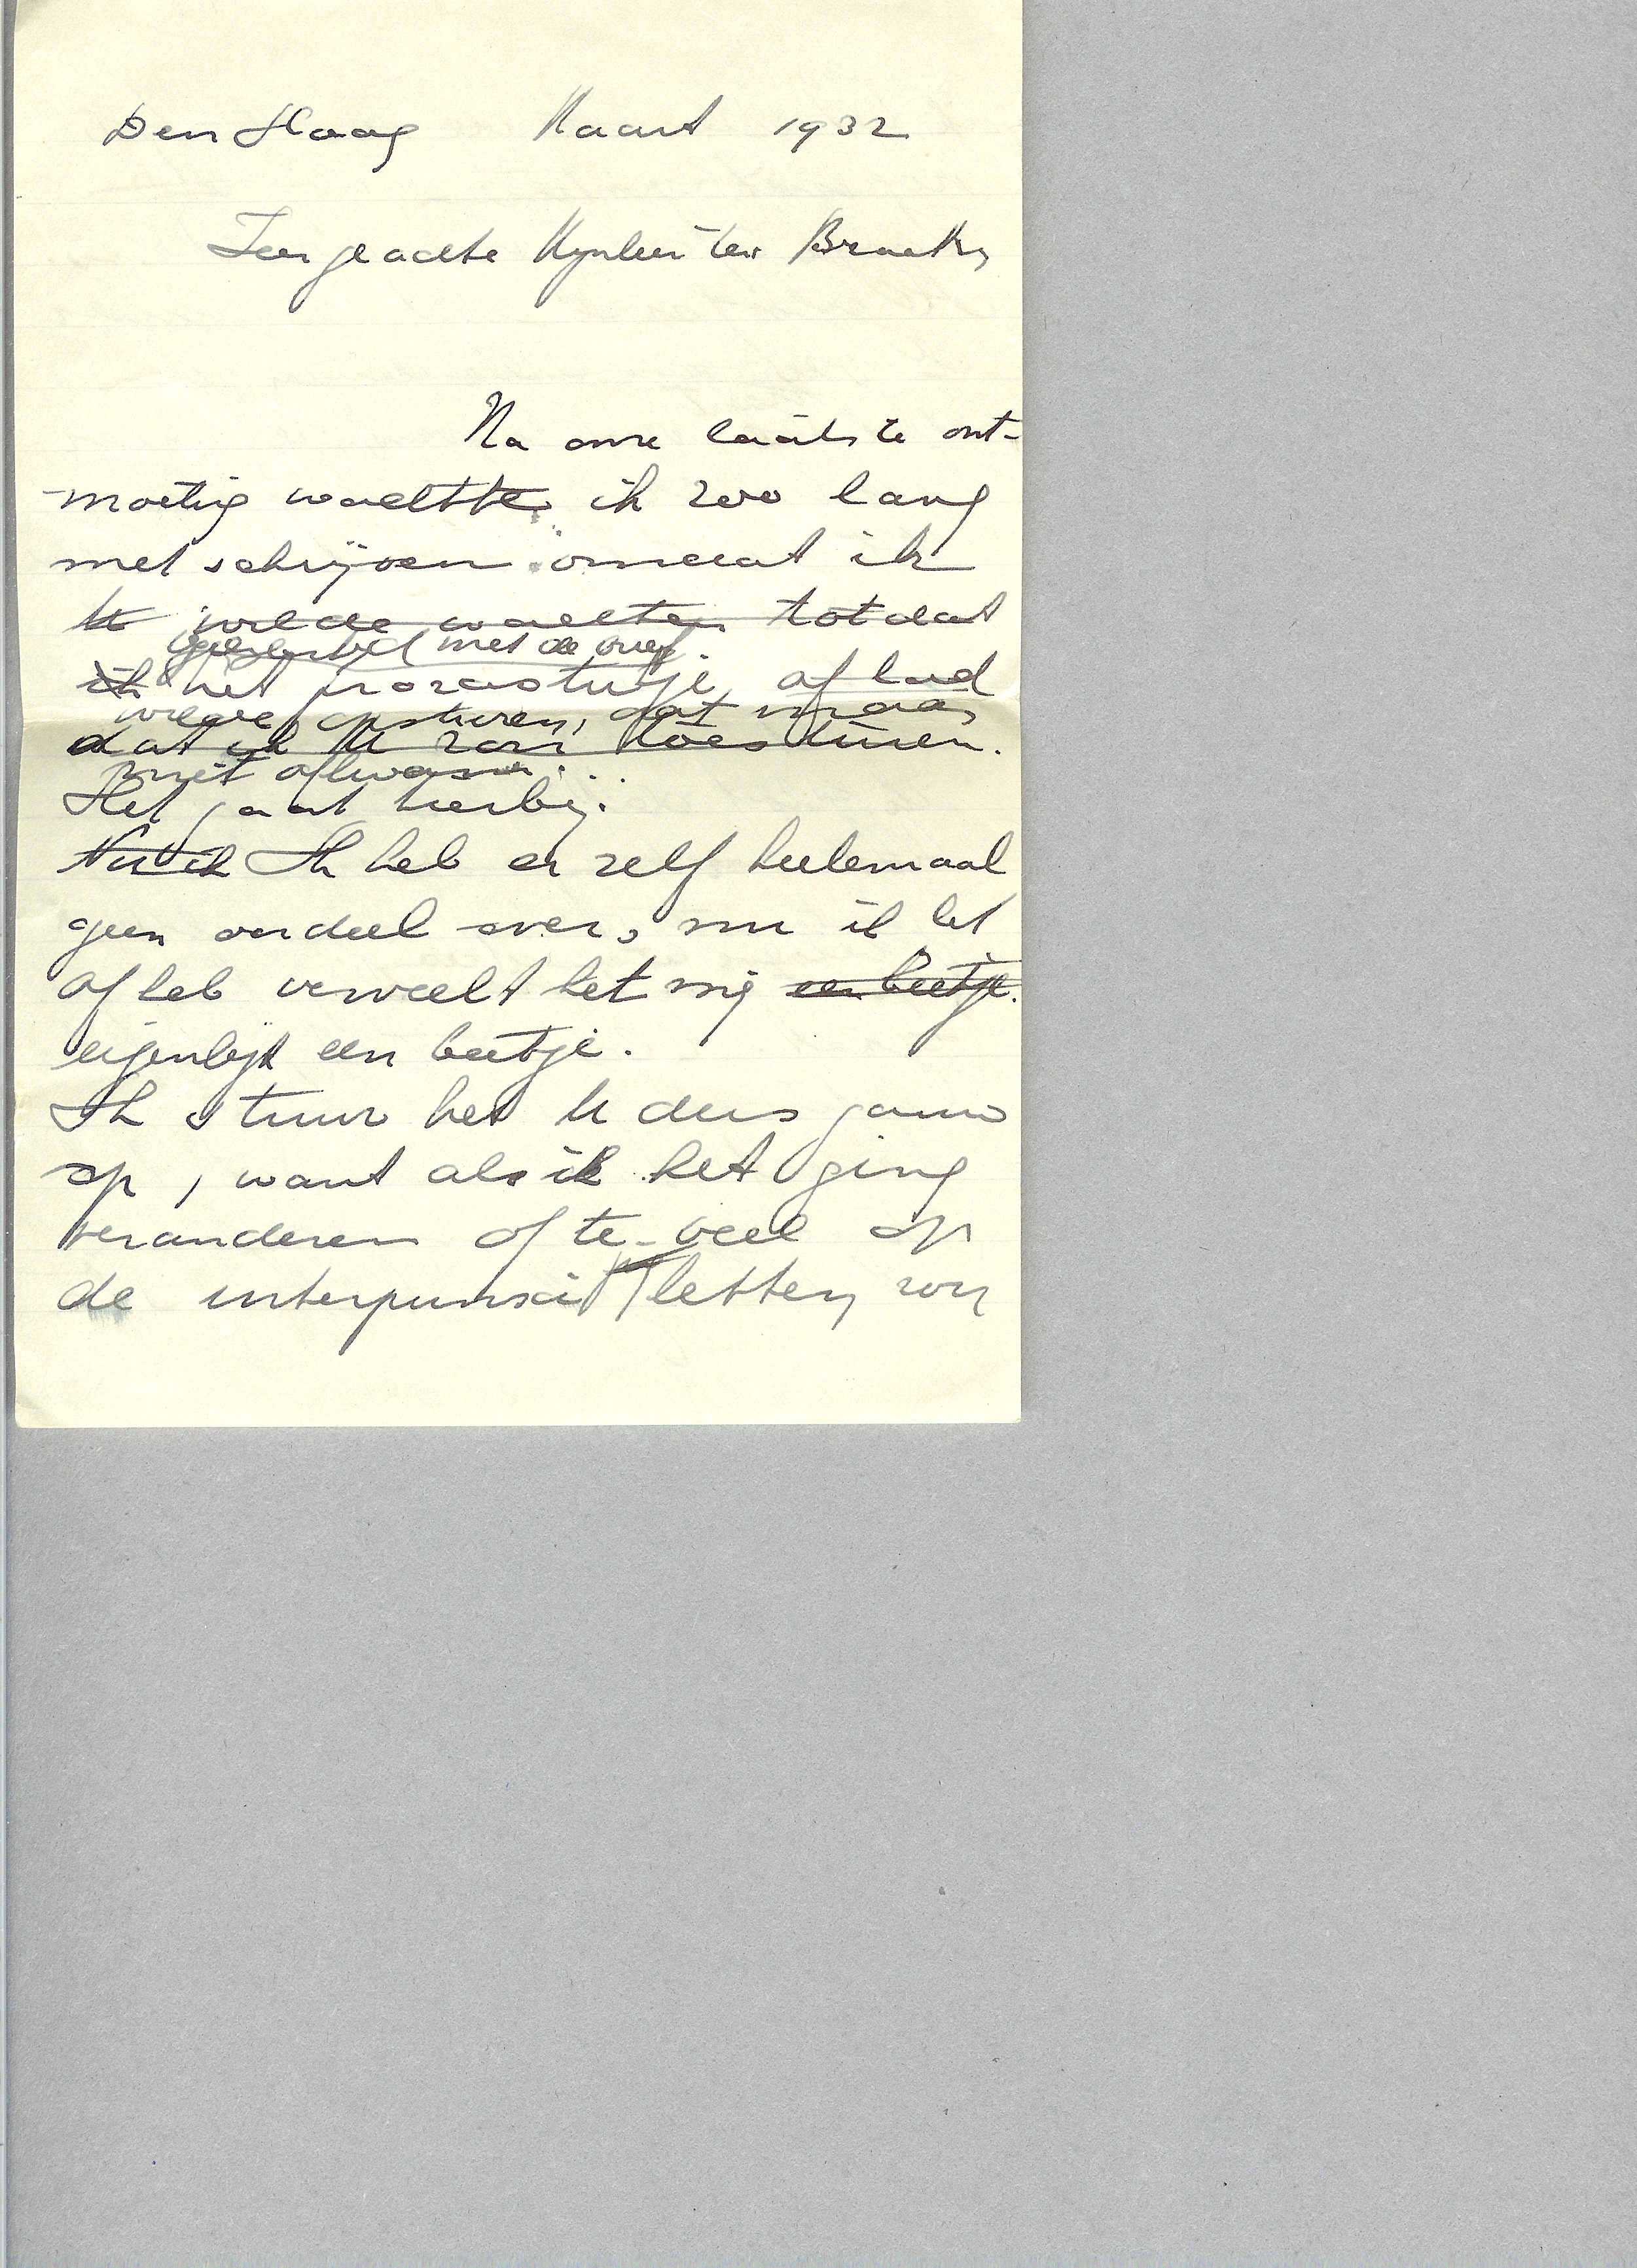 Den Haag Maart 1932
Zeer geachte Mijnheer ter Braak,
Na onze laatste ont-
moeting wachtte ik zoo lang
met schrijven omdat ik
U wilde wachten totdat
gelijktijdig met de brief
ik het prozastukje af had
wilde opsturen, dat maar
dat ik U zou toesturen.
niet afkwam.
Het gaat hierbij.
Nu ik Ik heb er zelf heelemaal
geen oordeel over, nu ik het
af heb verveelt het mij een beetje.
eigenlijk een beetje.
Ik stuur het U dus gauw
op, want als ik het ging
veranderen of te veel op
de interpunxie letten, zou